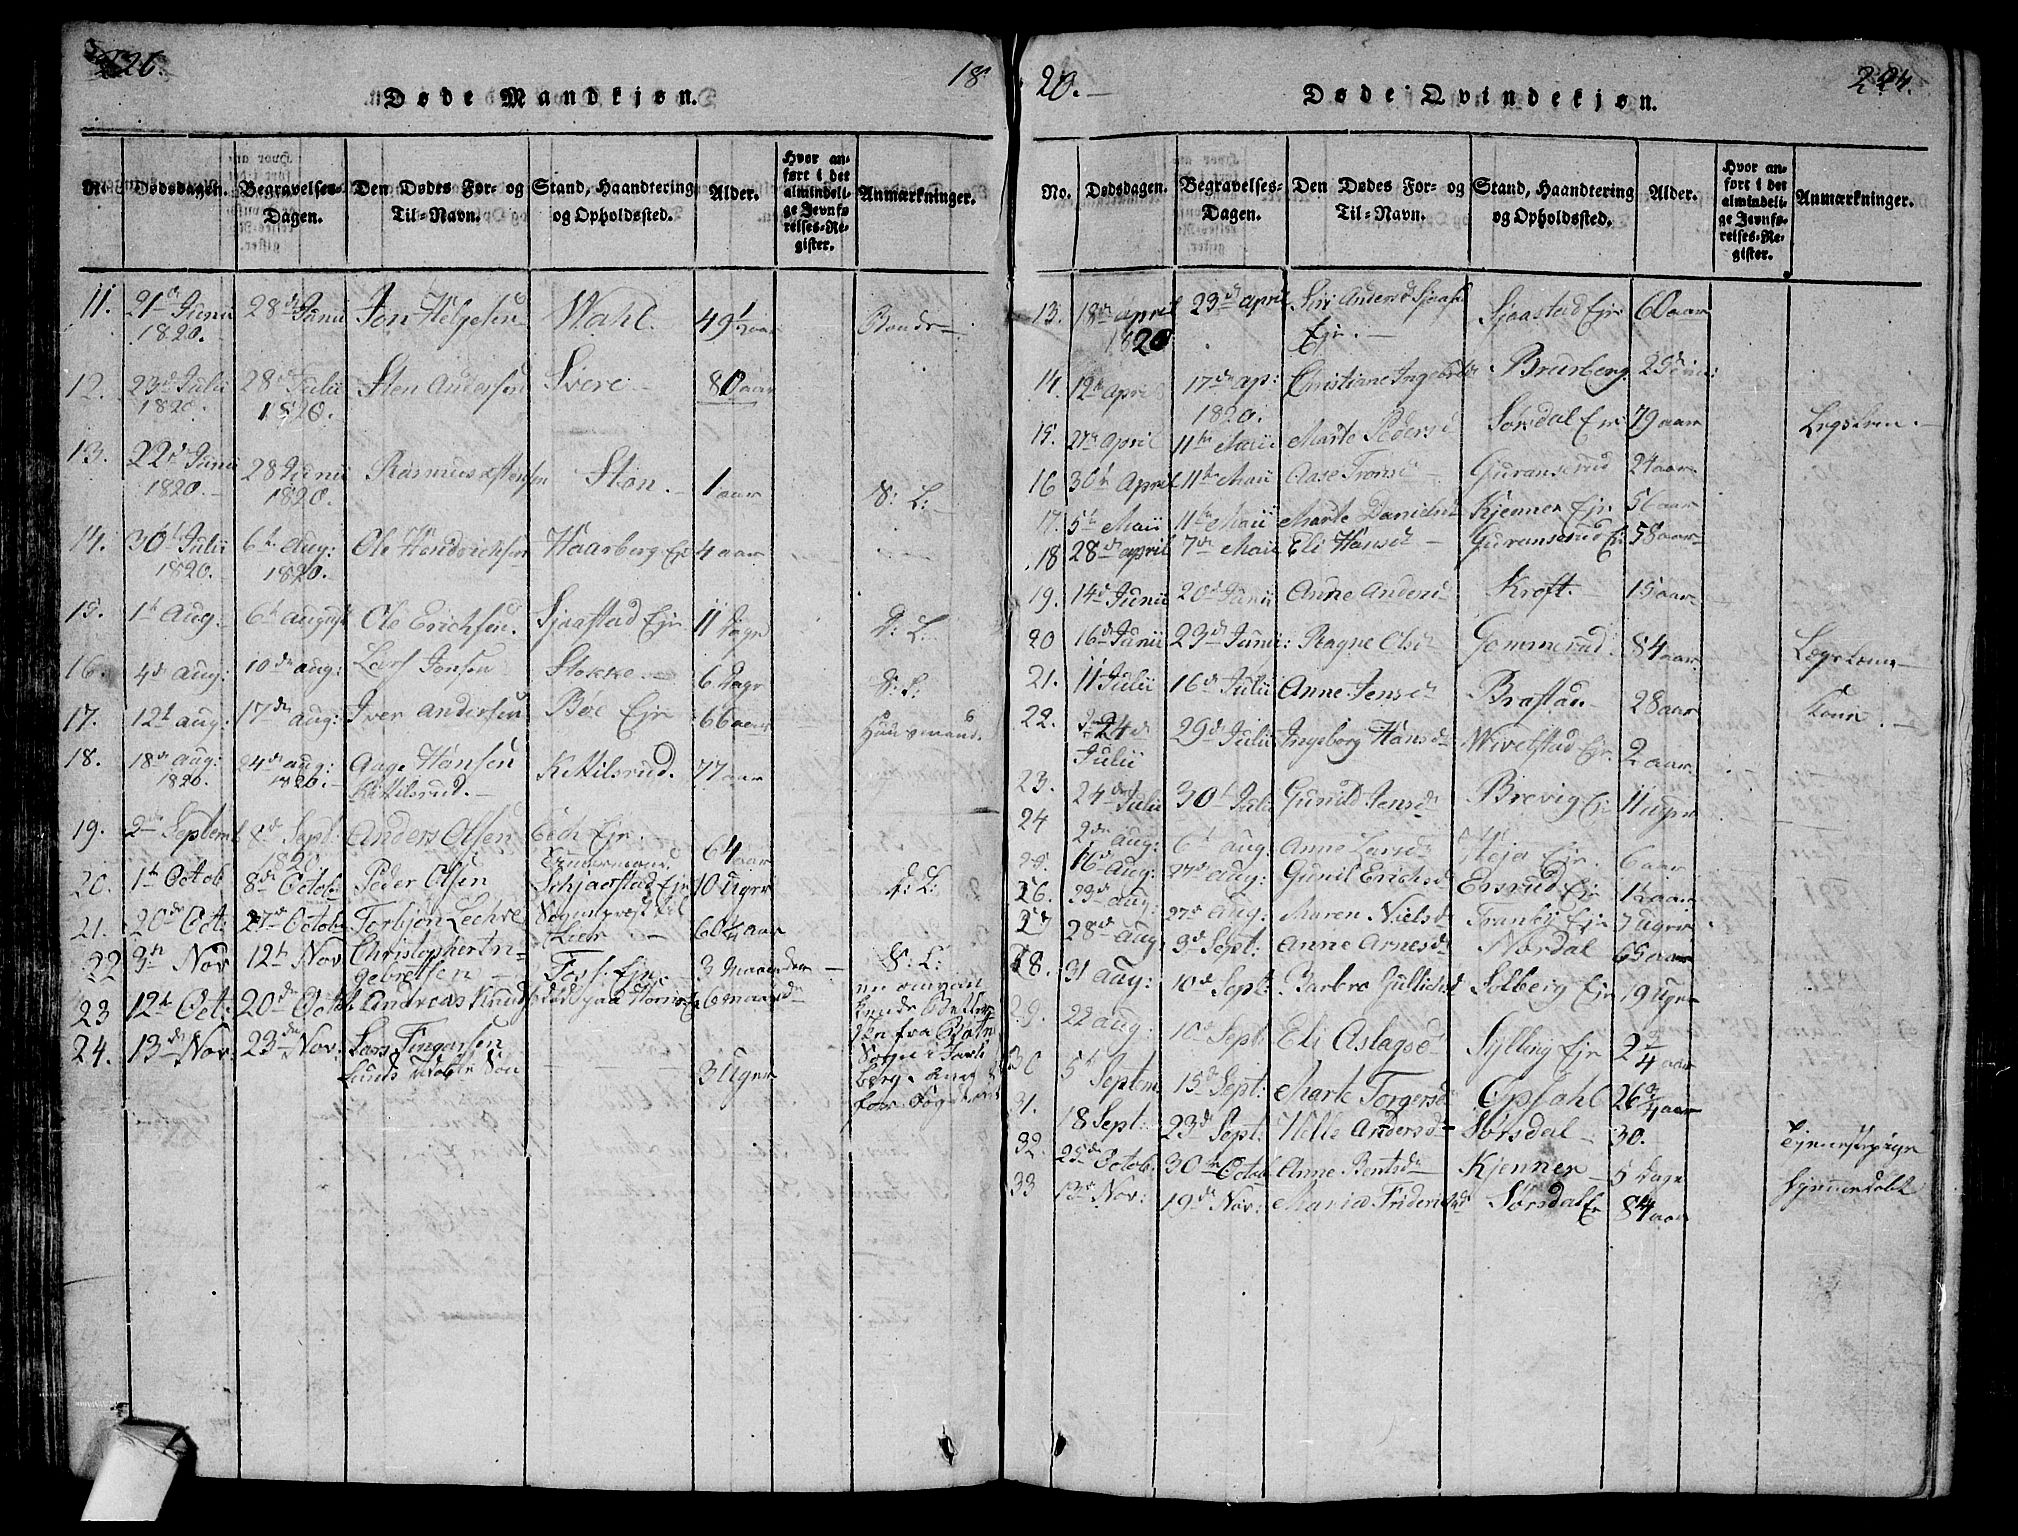 18
Døde Mandkjøn.
No. Dødsdagen. Begravelses-Dagen. Den Dødes For- og Til-Navn. Stand, Haandtering og Opholdssted. Alder. Hvor anført i det almindelige Jevnførelses-Register. Anmærkninger.
11. 21de Junii 1820. 28de Junii Jon Helgesen Wahl. 49 1/2 aar Bonde
12. 23de Julii 1820. 28de Julii 1820. Sten Andersen Svere 80 aar
13. 22de Junii 1820. 28 Junii 1820. Rasmus Ston. 1 aar S: L:
14. 30te Julii 1820. 6te Aug: 1820. Ole Hendrichsen Haarberg Eje 4 aar
15. 1te Aug. 6te August Ole Erichsen. Sjaastad Eje 11 Dage S: L:
16. 4de Aug: 10de aug: Lars Jonsen Stokke 6 Dage S: L:
17. 12te aug: 17de aug: Iver Andersen Bøe Eje 66 aar Huusmand.
18. 18de aug: 1820. 24de aug: 1820. Aage Hansen Kittilsrud. Kittilsrud. 77 aar
19. 2de Septemb 8de Sept. 1820 Anders Olsen Eech Eje. 64 aar
20. 1te Octob 8de Octob Peder Olsen Schjaastad Eje 10 Uger S: L:
21. 20de Oct: 27de Octob: Torbjøn Lechve Sogneprest til Lier 60 1/4 aar
22 3de Nov 12te Nov Christopher Ingebretsen Foss. Eje 3 Maaneder S: L:
23 12te Oct: 20de Octob Andreas Knuds død paa 6 maaneder
24. 13de Nov: 23de Nov: Lars Fingarsen 3 Uger
20.
224.
Døde Qvindekjøn.
No. Dødsdagen. Begravelses-Dagen. Den Dødes For- og Til-Navn. Stand, Haandtering og Opholdssted. Alder. Hvor anført i det almindelige Jevnførelses-Register. Anmærkninger.
13. 18de april 1820 23de april Siri Andersd Sjaastad Eje. Sjaastad Eje 60 aar
14. 12te april 17de ap: 1820. Christiane Ingebrets Brurberg
15. 27de april 11te Maii Marte Pedersd Sørsdal Eje 79 aar Legdslem.
16 30te April 11te Maii Aase Tronsd Guranserud 24 aar
17. 5te Maii 11te Maii Marte Danielsd Kjenner Eje 56 aar
18 28de april 7de Maii Eli Hansd Guranserud Eje 58 aar
19. 14de Junii 20de Junii Anne Andersd Kroft. 15 aar
20 16de Junii 23de Junii: Ragne Olsd Gommerud 84 aar Legdslem
21. 11te Julii 16de Julii Anne Jensd Brastad 28 aar Kone.
22. 24de Julii 29de Julii Ingeborg Hansd Wivelstad Eje. 2 aar
23. 24de Julii 30te Julii Gunild Jensd Brevig Eje 11 uger
24 2de aug: 6te aug: Anne Larsd Meja Eje. 6 aar
25. 16de Aug: 27de aug: Gunil Erichsd Ersrud Eje 1 1/2 aar
26. 23de aug: 27de aug: Maren Nielsd Tranby Eje 7 uger
27 28de aug 3de Sept: Anne Arnesd Nordal 65 aar
28. 31 aug: 10de Sept: Barbro Gullichsd Solberg Eje 19 Uger
29. 22 aug: 10de Sept: Eli Aslagsd Sylling Eje 2 3/4 aar
30 5te Septem 15de Sept: Marte Torgersd Opsahl 26 3/4 aar
31. 18 Sept: 23de Sept: Helle Andersd Sørsdal 30. Tjenestepige
32. 25de Octob. 30te Octob Anne Bentsd Kjenner 5 Dage Hjemmedøbt
33 13de Nov: 19de Nov: Maria Friderichsd Sørsdal Eje 84 aar